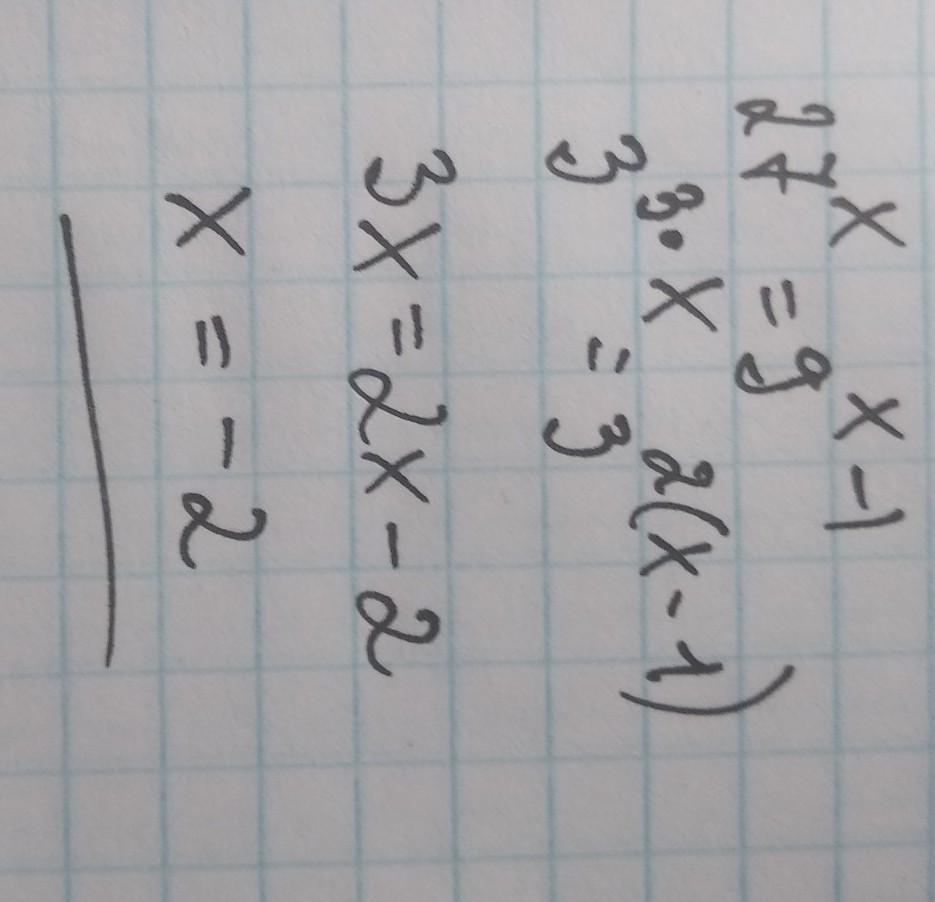 27^x = 9^x-1
3^3·x = 3^2(x-1)
3x = 2x - 2
x = -2